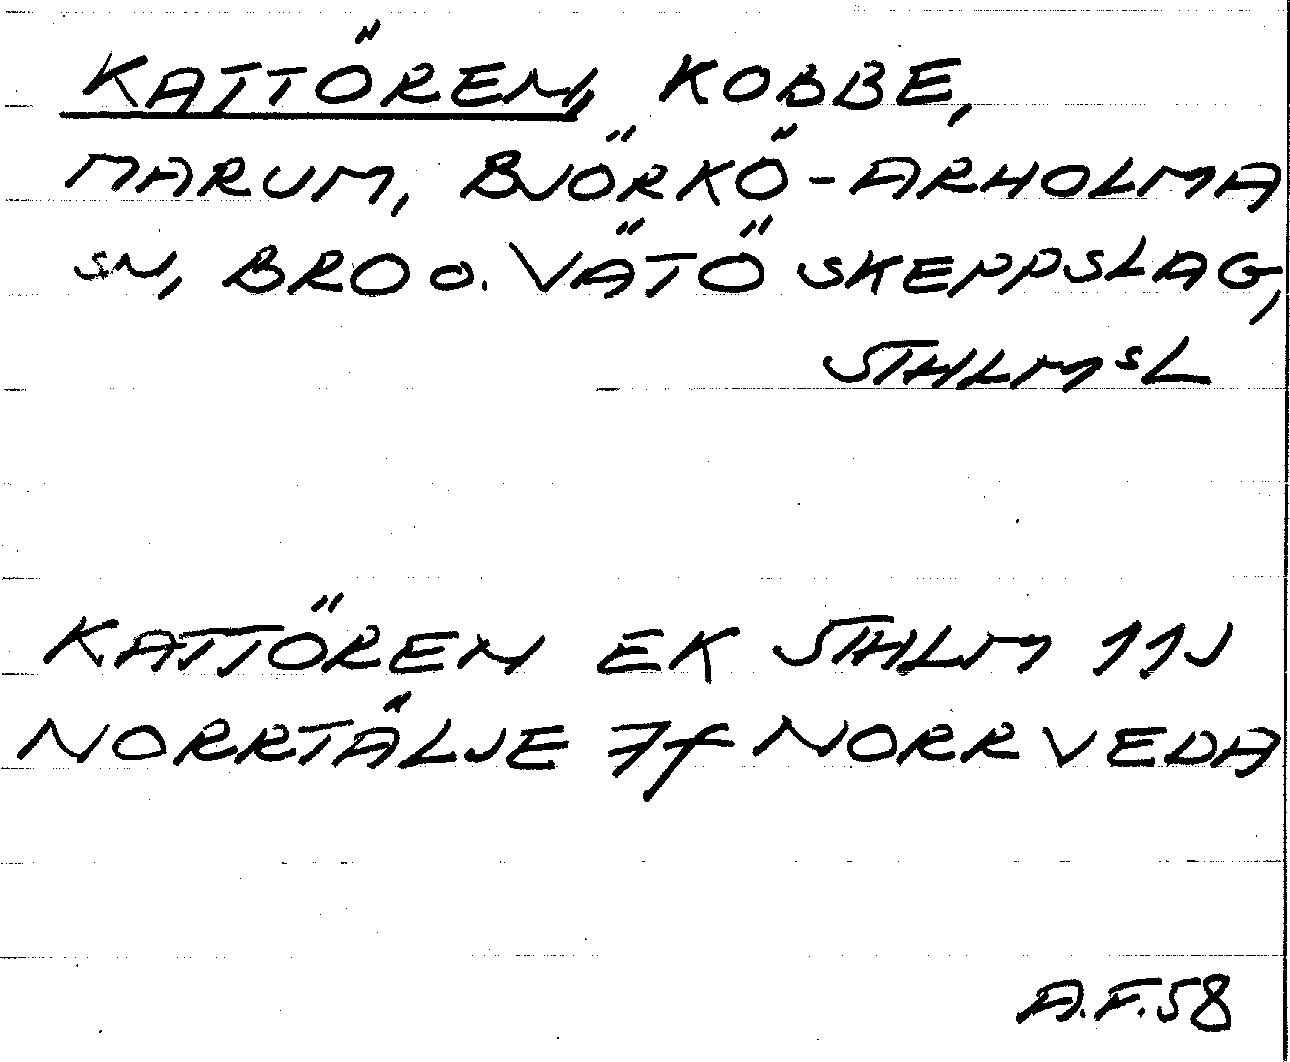 KATTÖREN, KOBBE,
MARUM, BJÖRKÖ-ARHOLMA
SN, BRO O. VÄTÖ SKEPPSLAG,
STHLMSL
KATTÖREN EK STHLM 11J
NORRTÄLJE 7f NORRVEDA
A.F.58